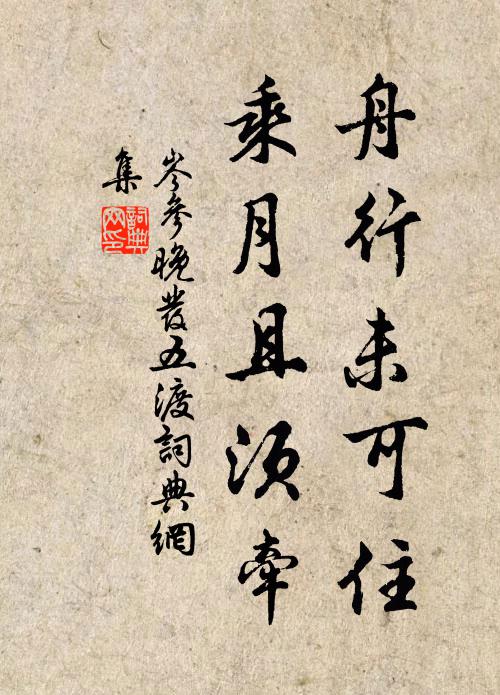 舟行未可住
乘月且須牽
岑參晚發五渡詞典網
集
詞典網印